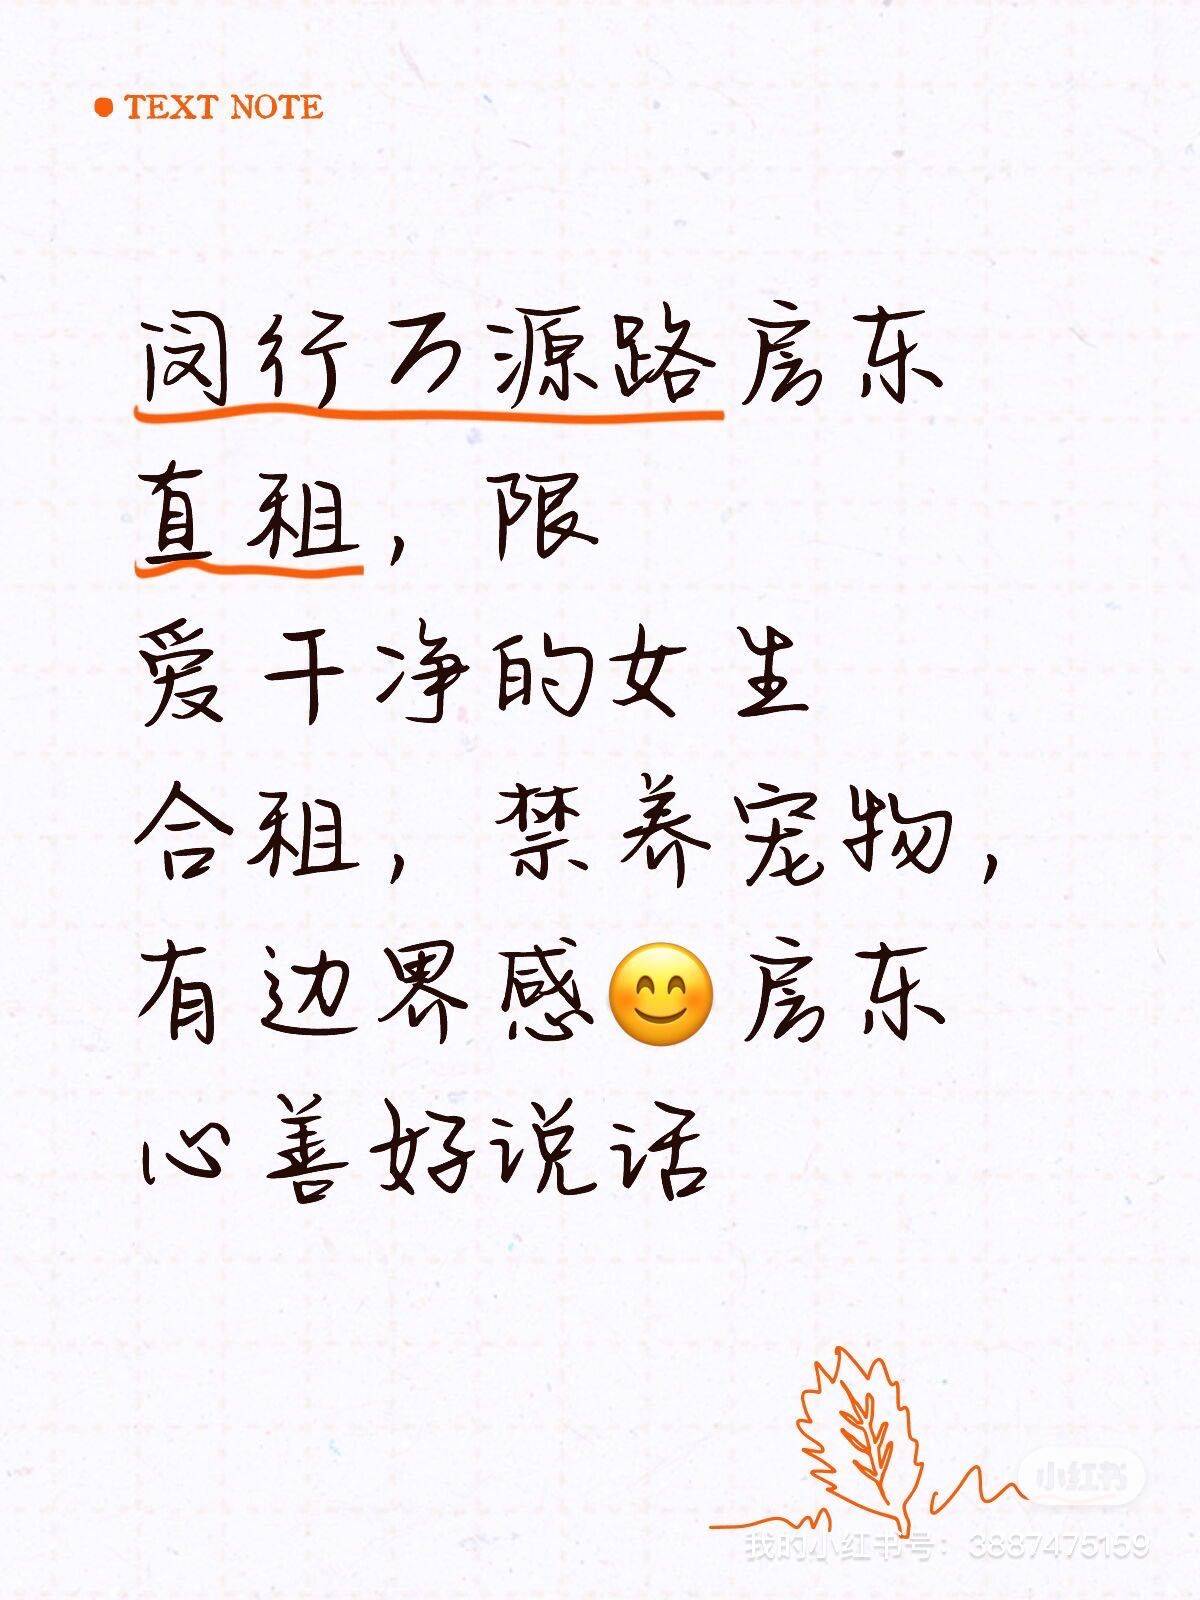 TEXT NOTE
闵行万源路房东
直租，限
爱干净的女生
合租，禁养宠物，
有边界感😊房东
心善好说话
小红书
我的小红书号：3887475159